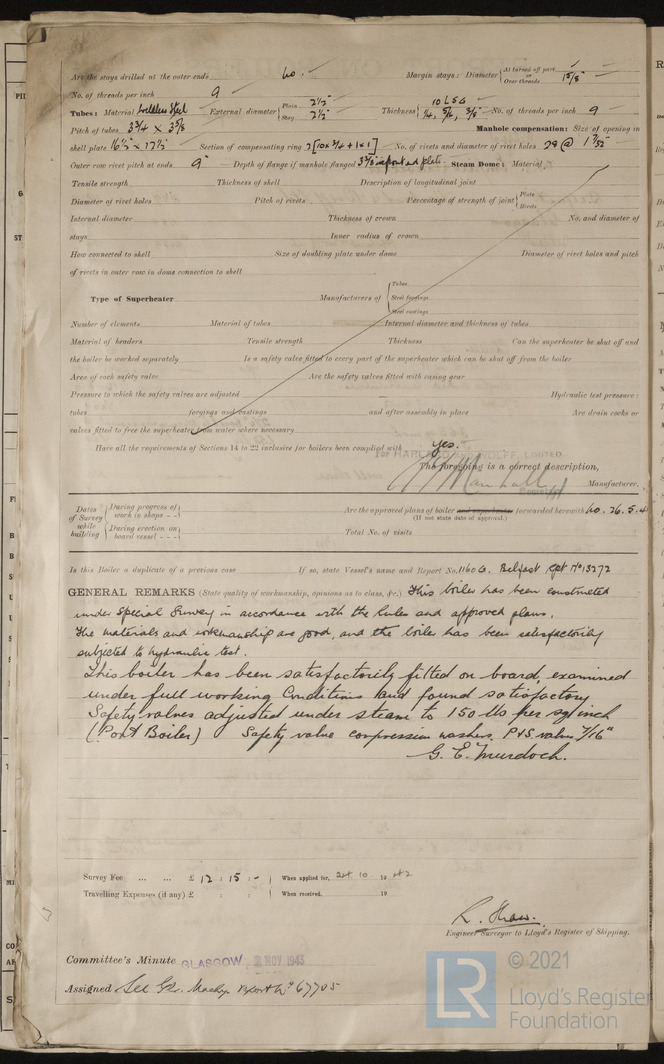 Are the stays drilled at the outer ends No. Margin stays: Diameter { At turned off part, or Over threads 1 5/8"
No. of threads per inch 9
Tubes: Material Seamless Steel External diameter { Plain 2½" Stay 2½" Thickness { 10 LSG ¼, 5/16, 3/8" No. of threads per inch 9
Pitch of tubes 3¾ x 3 5/8 Manhole compensation: Size of opening in
shell plate 16½" x 12½" Section of compensating ring No. of rivets and diameter of rivet holes 28 @ 1 7/32"
Outer row rivet pitch at ends 9" Depth of flange if manhole flanged Steam Dome: Material
Tensile strength Thickness of shell Description of longitudinal joint
Diameter of rivet holes Pitch of rivets Percentage of strength of joint { Plate Rivets
Internal diameter Thickness of crown No. and diameter of
stays Inner radius of crown
How connected to shell Size of doubling plate under dome Diameter of rivet holes and pitch
of rivets in outer row in dome connection to shell
Type of Superheater Manufacturers of { Tubes Steel forgings Steel castings
Number of elements Material of tubes Internal diameter and thickness of tubes
Material of headers Tensile strength Thickness Can the superheater be shut off and
the boiler be worked separately Is a safety valve fitted to every part of the superheater which can be shut off from the boiler
Area of each safety valve Are the safety valves fitted with easing gear
Pressure to which the safety valves are adjusted Hydraulic test pressure:
tubes forgings and castings and after assembly in place Are drain cocks or
valves fitted to free the superheater from water where necessary
Have all the requirements of Sections 14 to 22 inclusive for boilers been complied with Yes.
For HARLAND AND WOLFF, LIMITED.
The foregoing is a correct description,
Manufacturer.
Dates of Survey while building { During progress of work in shops - - During erection on board vessel - - - Are the approved plans of boiler and superheater forwarded herewith No. 26.5.4
(If not state date of approval.)
Total No. of visits
Is this Boiler a duplicate of a previous case If so, state Vessel's name and Report No. 1160G. Belfast Rpt No 13272
GENERAL REMARKS (State quality of workmanship, opinions as to class, &c.) This boiler has been constructed
under Special Survey in accordance with the rules and approved plans.
The materials and workmanship are good, and the boiler has been satisfactorily
subjected to hydraulic test.
This boiler has been satisfactorily fitted on board, examined
under full working Conditions and found satisfactory
Safety valves adjusted under steam to 150 lbs per sq inch
(Port Boiler) Safety valve compression washers. P&S valve 7/16"
G. E. Murdoch.
Survey Fee ... ... £ 12 : 15 : - When applied for, 24.10 19 42
Travelling Expenses (if any) £ : : When received, 19
R. Shaw.
Engineer Surveyor to Lloyd's Register of Shipping.
Committee's Minute GLASGOW NOV 1943
Assigned See Gls. Machy. Report No 67705
LR © 2021
Lloyd's Register
Foundation